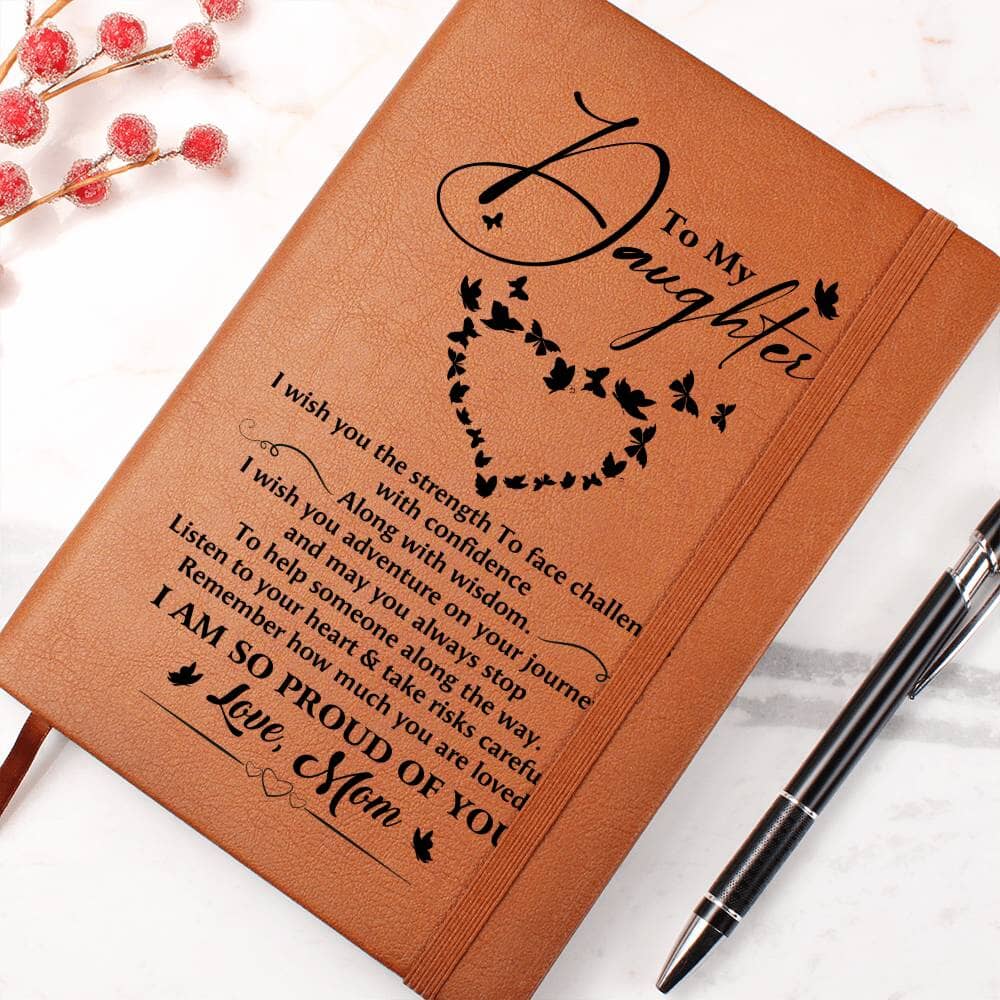 To My
Daughter
I wish you the strength To face challen
with confidence
Along with wisdom.
I wish you adventure on your journe
and may you always stop
To help someone along the way.
Listen to your heart & take risks carefu
Remember how much you are loved
I AM SO PROUD OF YOU
Love, Mom